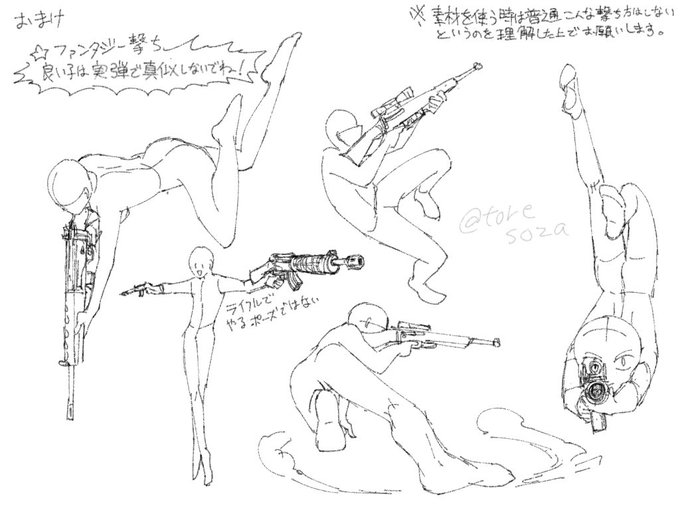 おまけ
☆ファンタジー撃ち
良い子は実弾で真似しないでね!
※素材を使う時は普通こんな撃ち方はしない
というのを理解した上でお願いします。
@tore
soza
ライフルで
やるポーズではない